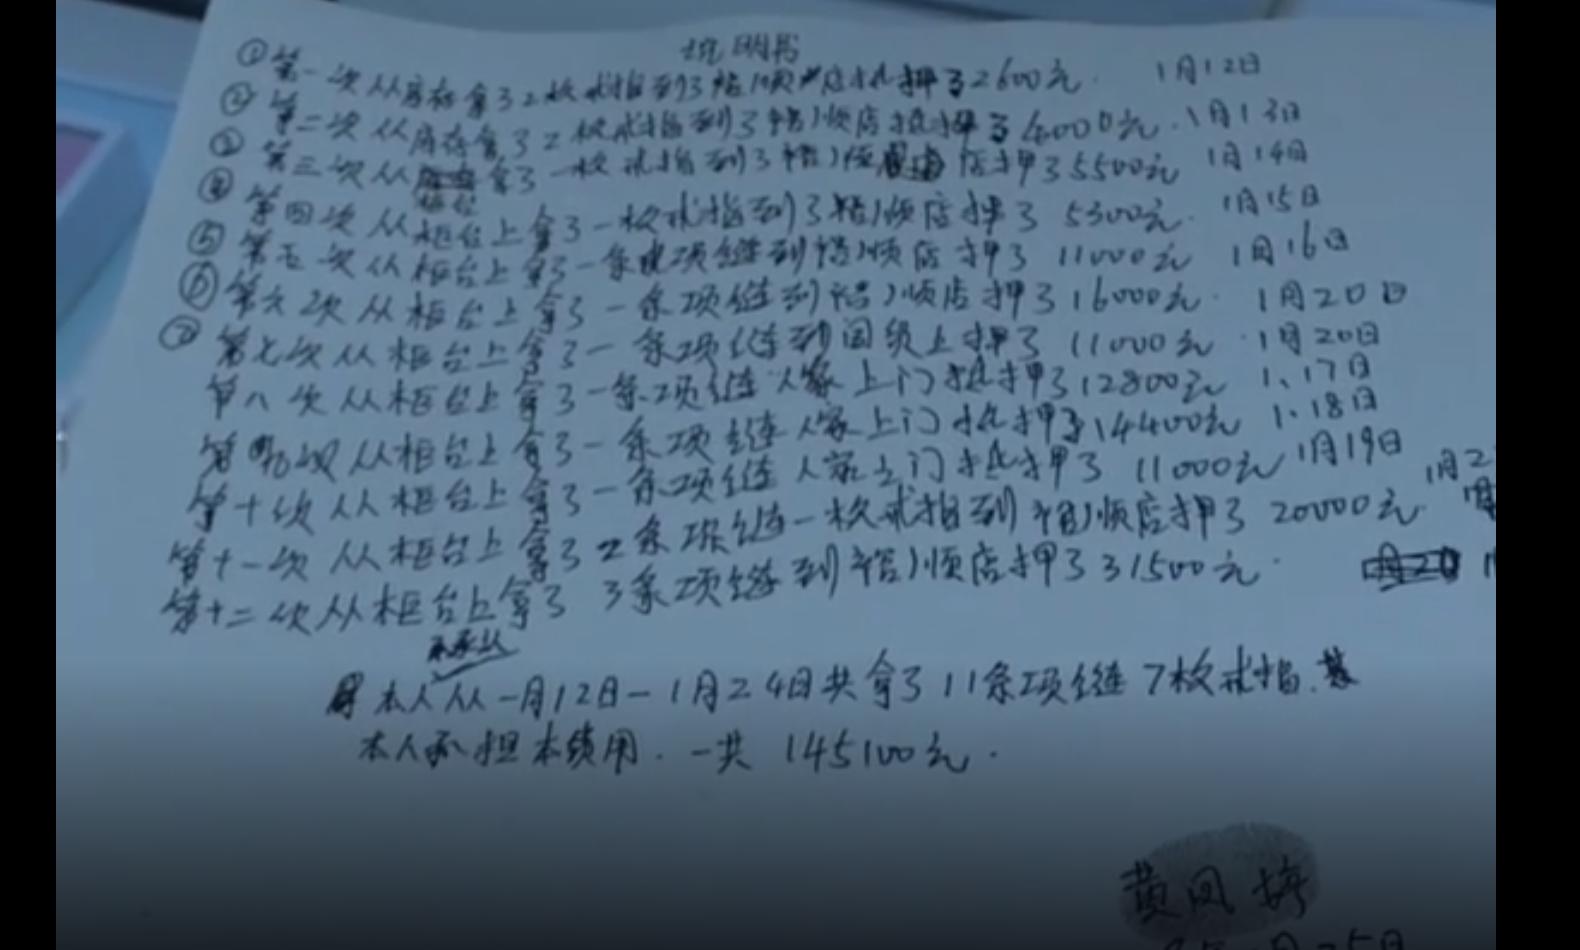 说明书
① 第一次从库存拿了2枚戒指到了裕顺店抵押了2600元. 1月12日
② 第二次从库存拿了2枚戒指到了裕顺店抵押了4000元. 1月13日
③ 第三次从柜台拿了一枚戒指到了裕顺店押了5500元 1月14日
④ 第四次从柜台上拿了一枚戒指到了裕顺店押了 5300元. 1月15日
⑤ 第五次从柜台上拿了一条项链到裕顺店押了 11000元 1月16日
⑥ 第六次从柜台上拿了一条项链到裕顺店押了16000元. 1月20日
⑦ 第七次从柜台上拿了一条项链到国贸上押了 11000元. 1月20日
第八次从柜台上拿了一条项链人家上门抵押了12800元 1、17日
第九次从柜台上拿了一条项链人家上门抵押了14400元 1、18日
第十次从柜台上拿了一条项链人家上门抵押了 11000元 1月19日
第十一次从柜台上拿了2条项链一枚戒指到裕顺店押了 20000元. 1月2
第十二次从柜台上拿了 3条项链到裕顺店押了31500元.
本人从一月12日-1月24日共拿了11条项链7枚戒指.
本人承担本费用. 一共 145100元.
黄凤